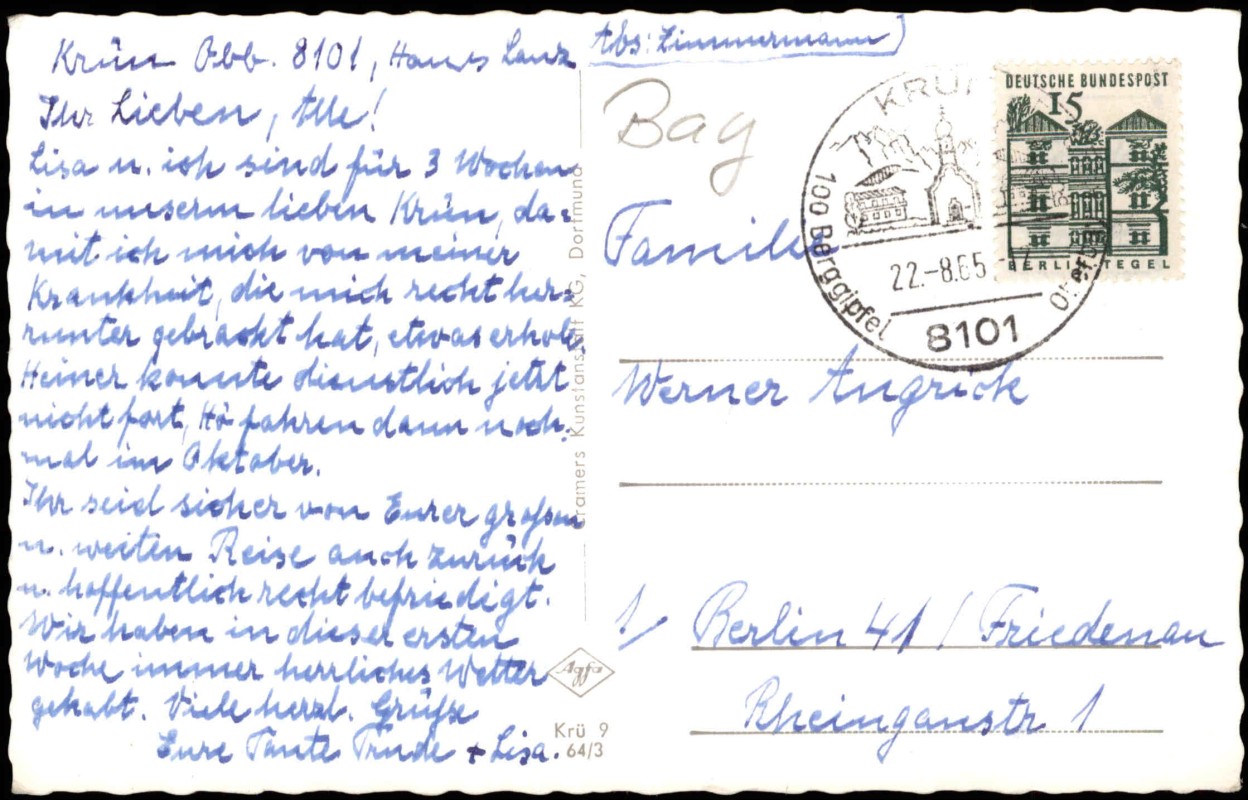 Krün Obb. 8101, Haus Lanz
Abs: Zimmermann
Ihr Lieben, Alle!
Lisa u. ich sind für 3 Wochen
in unserm lieben Krün, da-
mit ich mich von meiner
Krankheit, die mich recht her-
runter gebracht hat, etwas erhole.
Heiner konnte dienstlich jetzt
nicht fort, fahren dann noch-
mal im Oktober.
Ihr seid sicher von Eurer großen
u. weiten Reise auch zurück
u. hoffentlich recht befriedigt.
Wir haben in dieser ersten
Woche immer herrliches Wetter
gehabt. Viele herzl. Grüße
Eure Tante Trude + Lisa.
Cramers Kunstanstalt KG, Dortmund
Agfa
Krü 9
64/3
Bag
KRÜN
100 Berggipfel
22.-8.65
8101
DEUTSCHE BUNDESPOST
15
BERLIN TEGEL
Familie
Werner Angrick
1/ Berlin 41 / Friedenau
Rheingaustr 1